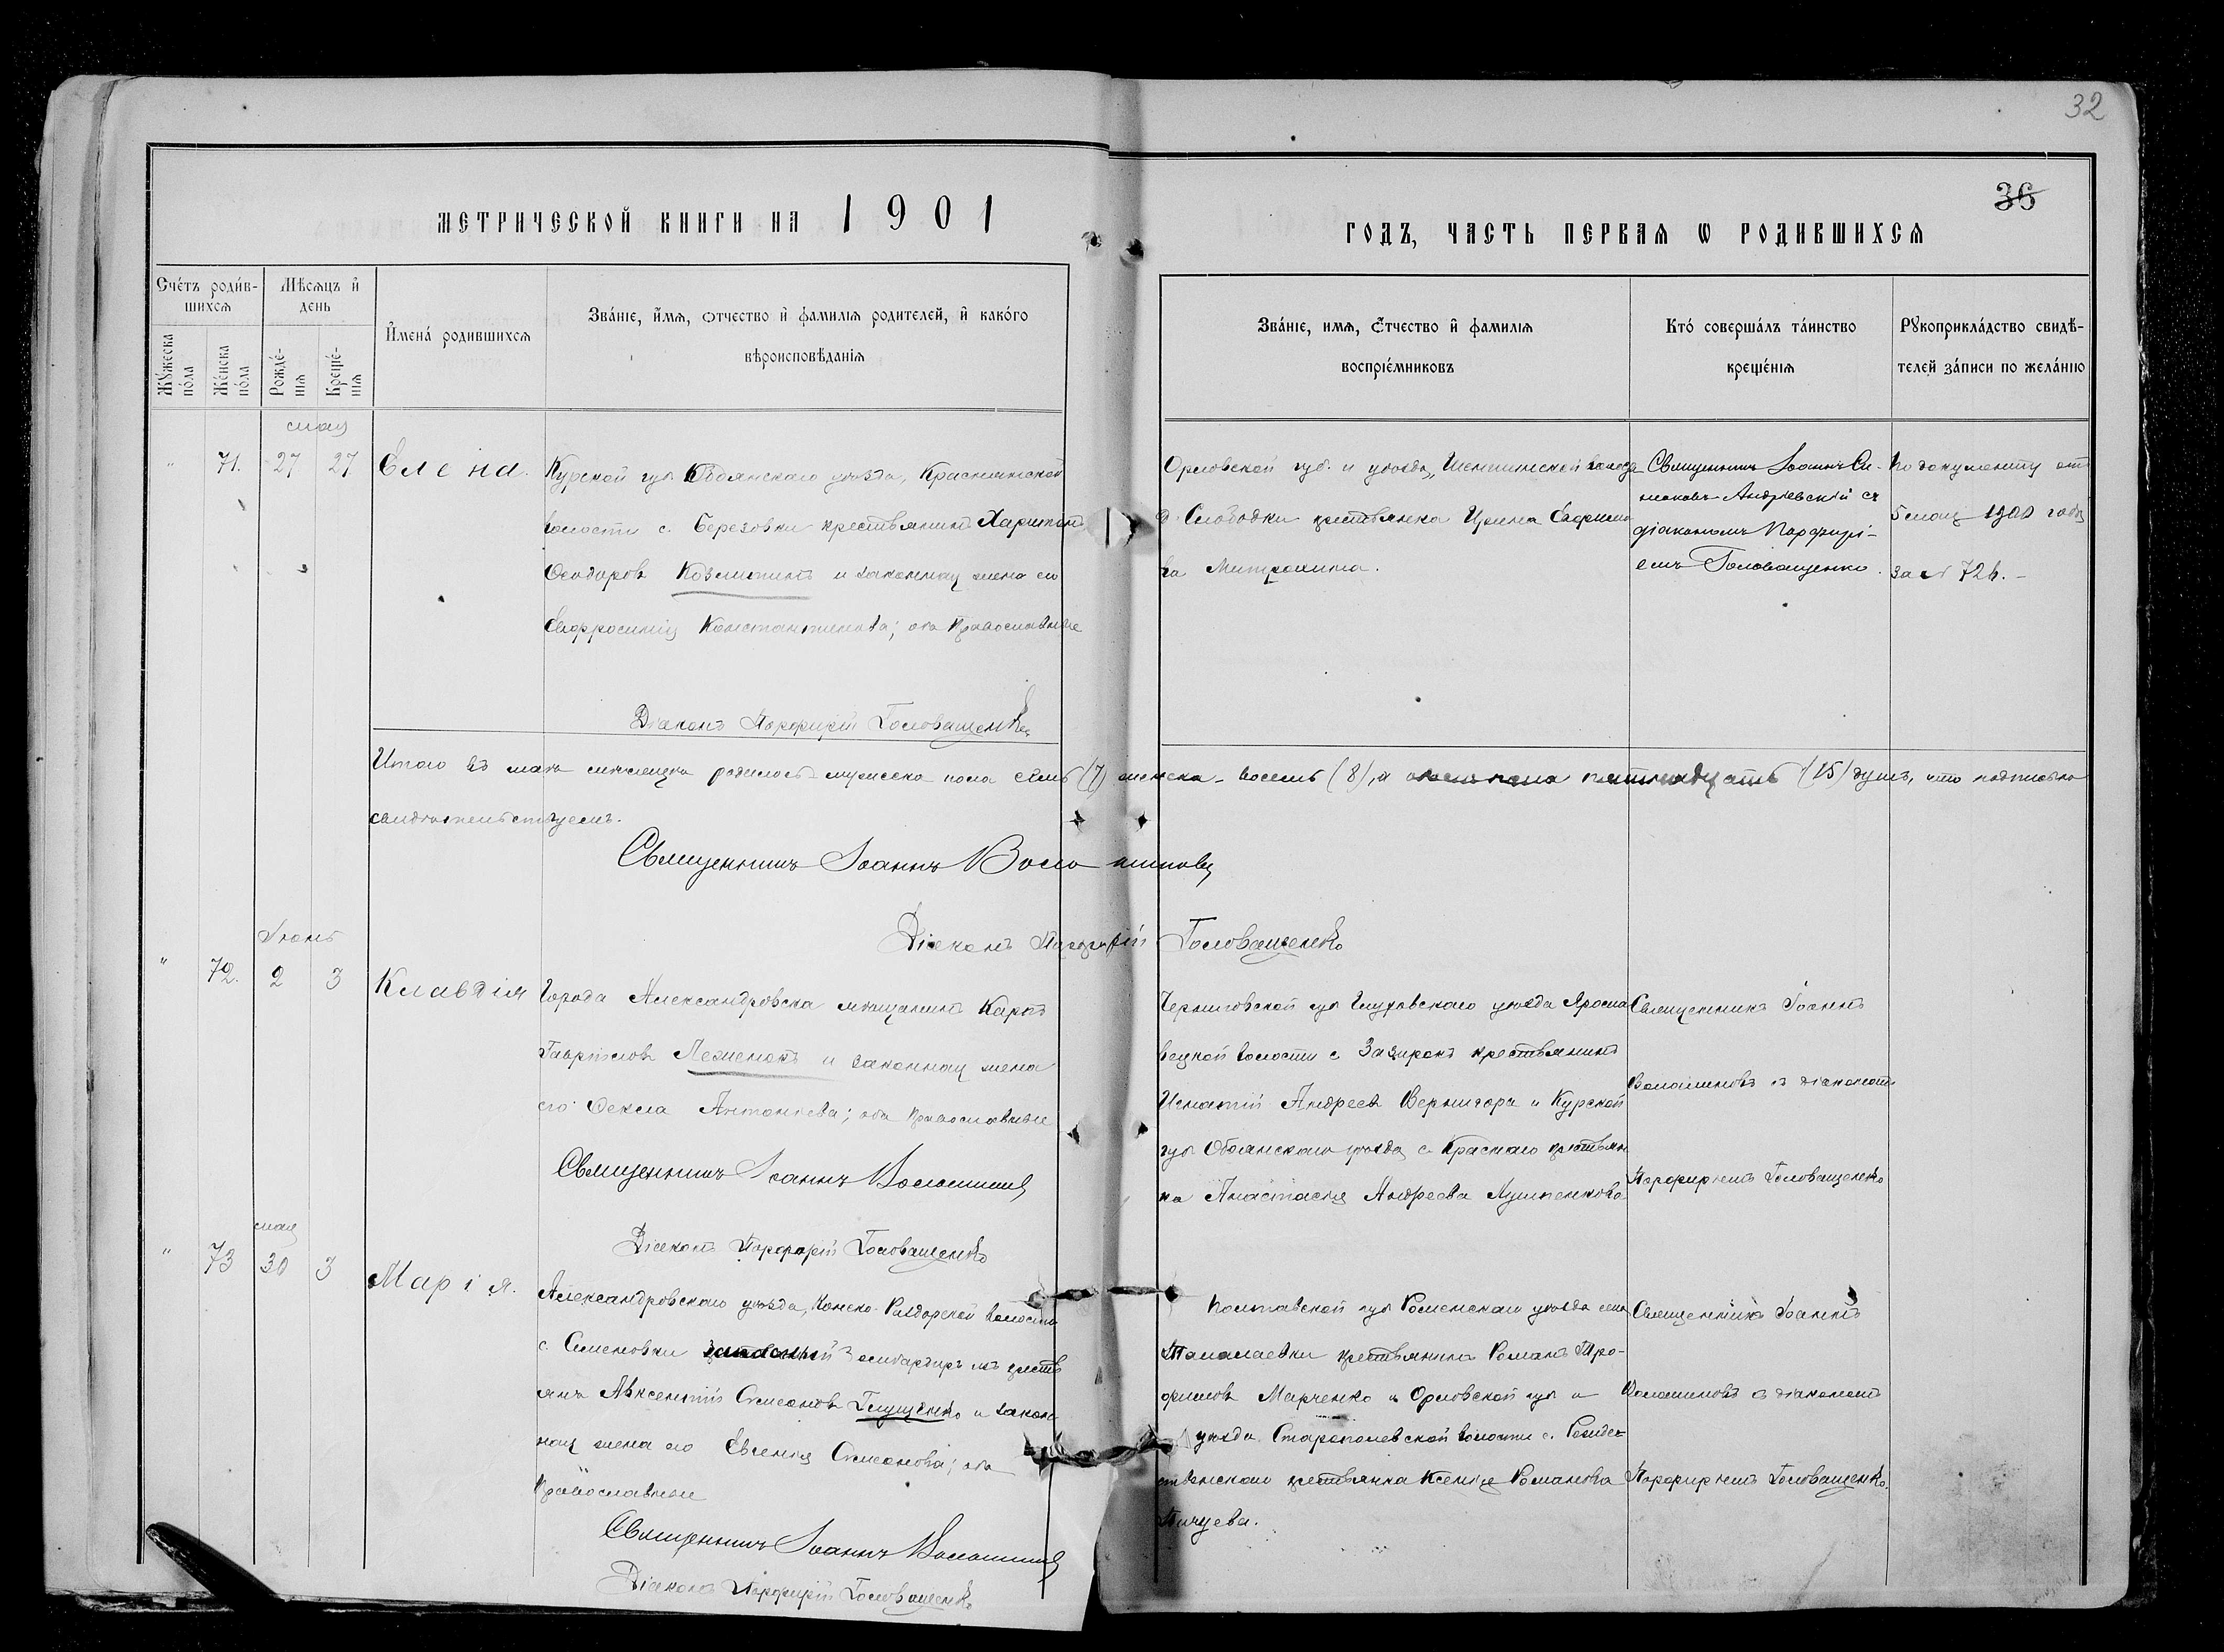 32
36
МЕТРИЧЕСКОЙ КНИГИ НА 1901
ГОДЪ, ЧАСТЬ ПЕРВАЯ Ѡ РОДИВШИХСЯ
Счетъ родив-
шихся
Мѣсяцъ и
день
Мужеска
пола
Женска
пола
Рожде-
нія
Креще-
нія
Имена родившихся
Званіе, имя, отчество и фамилія родителей, и какого
вѣроисповѣданія
Званіе, имя, отчество и фамилія
воспріемниковъ
Кто совершалъ таинство
крещенія
Рукоприкладство свидѣ-
телей записи по желанію
мая
" 71. 27 27 Елена.
Курской губ Обоянскаго уѣзда, Краснянской
волости с. Березовки крестьянинъ Харитонъ
Ѳеодоровъ Козьминъ и законная жена его
Евфросинія Константинова; оба православные
Діаконъ Порфирій Головащенко
Орловской губ. и уѣзда,
д. Слободки крестьянка Ирина Ефимо
ва Митрохина.
Священникъ Іоаннъ
Андріевскій съ
діакономъ Порфирі-
емъ Головащенко.
По документу отъ
5 мая 1900 года
за № 726.
Итого въ маѣ мѣсяцѣ родилось мужеска пола семь (7) женска - восемь (8), а обоего пола пятнадцать (15) душъ, что подписью
свидѣтельствуемъ.
Священникъ Іоаннъ Волошиновъ
Діаконъ Порфирій Головащенко
Іюнь
" 72. 2 3 Клавдія
Города Александровска мѣщанинъ Карпъ
Гавріиловъ и законная жена
его Ѳекла Антоніева; оба православные
Священникъ Іоаннъ Волошиновъ
Діаконъ Порфирій Головащенко
Черниговской губ Глуховскаго уѣзда Яросла
вецкой волости с. крестьянинъ
Игнатій Андреевъ Вернигора и Курской
губ Обоянскаго уѣзда с. Краснаго крестьян
ка Анастасія Андреева
Священникъ Іоаннъ
Волошиновъ съ діакономъ
Порфиріемъ Головащенко
мая
" 73 30 3 Марія.
Александровскаго уѣзда, Конско-Раздорской волости
с. Семеновки изъ крестъ
янъ Авксентій Симеоновъ Глущенко и закон
ная жена его Евгенія Симеонова; оба
православные
Священникъ Іоаннъ Волошиновъ
Діаконъ Порфирій Головащенко
Полтавской губ Роменскаго уѣзда села
Талалаевки крестьянинъ Романъ Тро-
фимовъ Марченко и Орловской губ и
уѣзда волости с. Рождe-
ственскаго крестьянка Ксенія Романова
Пичуева.
Священникъ Іоаннъ
Волошиновъ съ діакономъ
Порфиріемъ Головащенко.